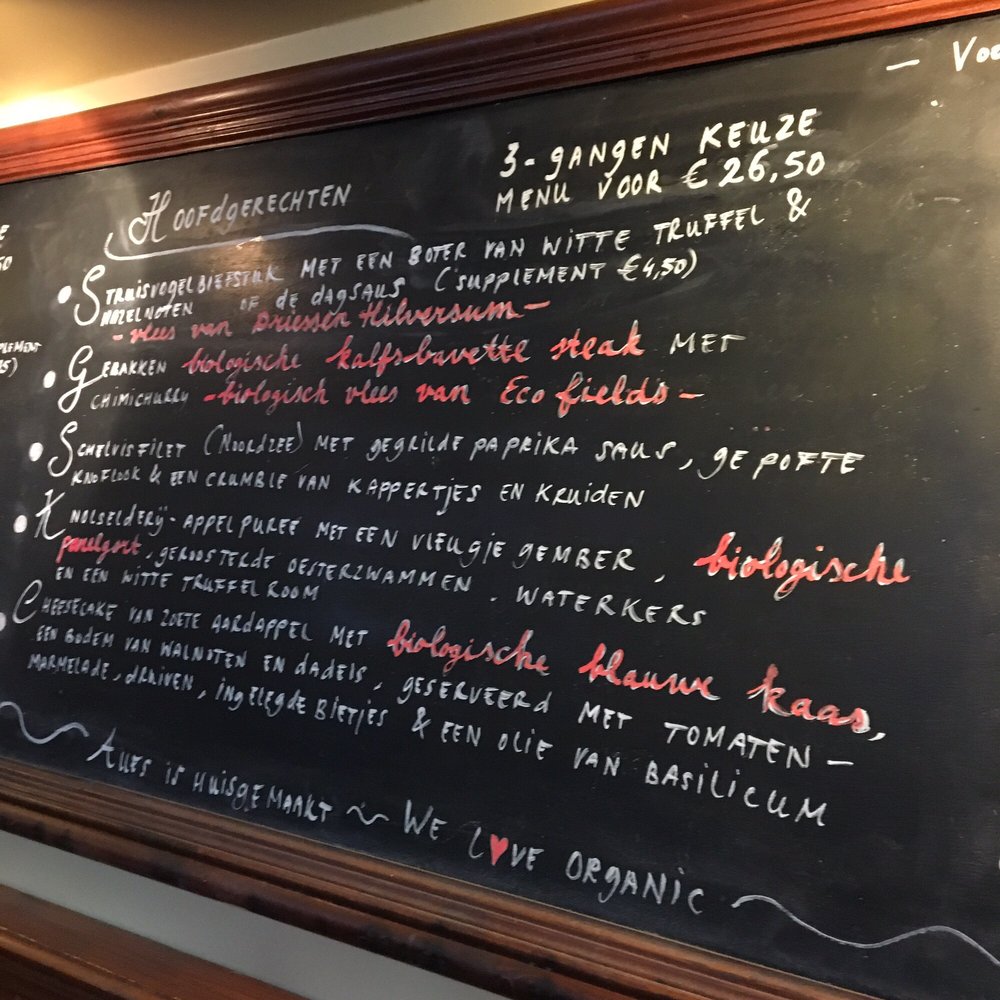 — Voo
3-GANGEN KEUZE
MENU VOOR € 26,50
HOOFDGERECHTEN
E
50
PLEMENT
• STRUISVOGELBIEFSTUK MET EEN BOTER VAN WITTE TRUFFEL &
HAZELNOTEN OF DE DAGSAUS (SUPPLEMENT €4,50)
- vlees van Driessen Hilversum -
• GEBAKKEN biologische kalfsbavette steak MET
CHIMICHURRY - biologisch vlees van Eco fields -
• SCHELVISFILET (NOORDZEE) MET GEGRILDE PAPRIKA SAUS, GEPOFTE
KNOFLOOK & EEN CRUMBLE VAN KAPPERTJES EN KRUIDEN
• KNOLSELDERIJ-APPELPUREE MET EEN VLEUGJE GEMBER, biologische
parelgort, GEROOSTERDE OESTERZWAMMEN, WATERKERS
EN EEN WITTE TRUFFEL ROOM
• CHEESECAKE VAN ZOETE AARDAPPEL MET biologische blauwe kaas,
EEN BODEM VAN WALNOTEN EN DADELS, GESERVEERD MET TOMATEN-
MARMELADE, DRUIVEN, INGELEGDE BIETJES & EEN OLIE VAN BASILICUM
ALLES IS HUISGEMAAKT ~ WE L♥VE ORGANIC